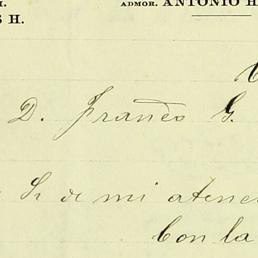 ADMOR. ANTONIO H
S H.
D. Franco G.
Sr de mi aten
Con la